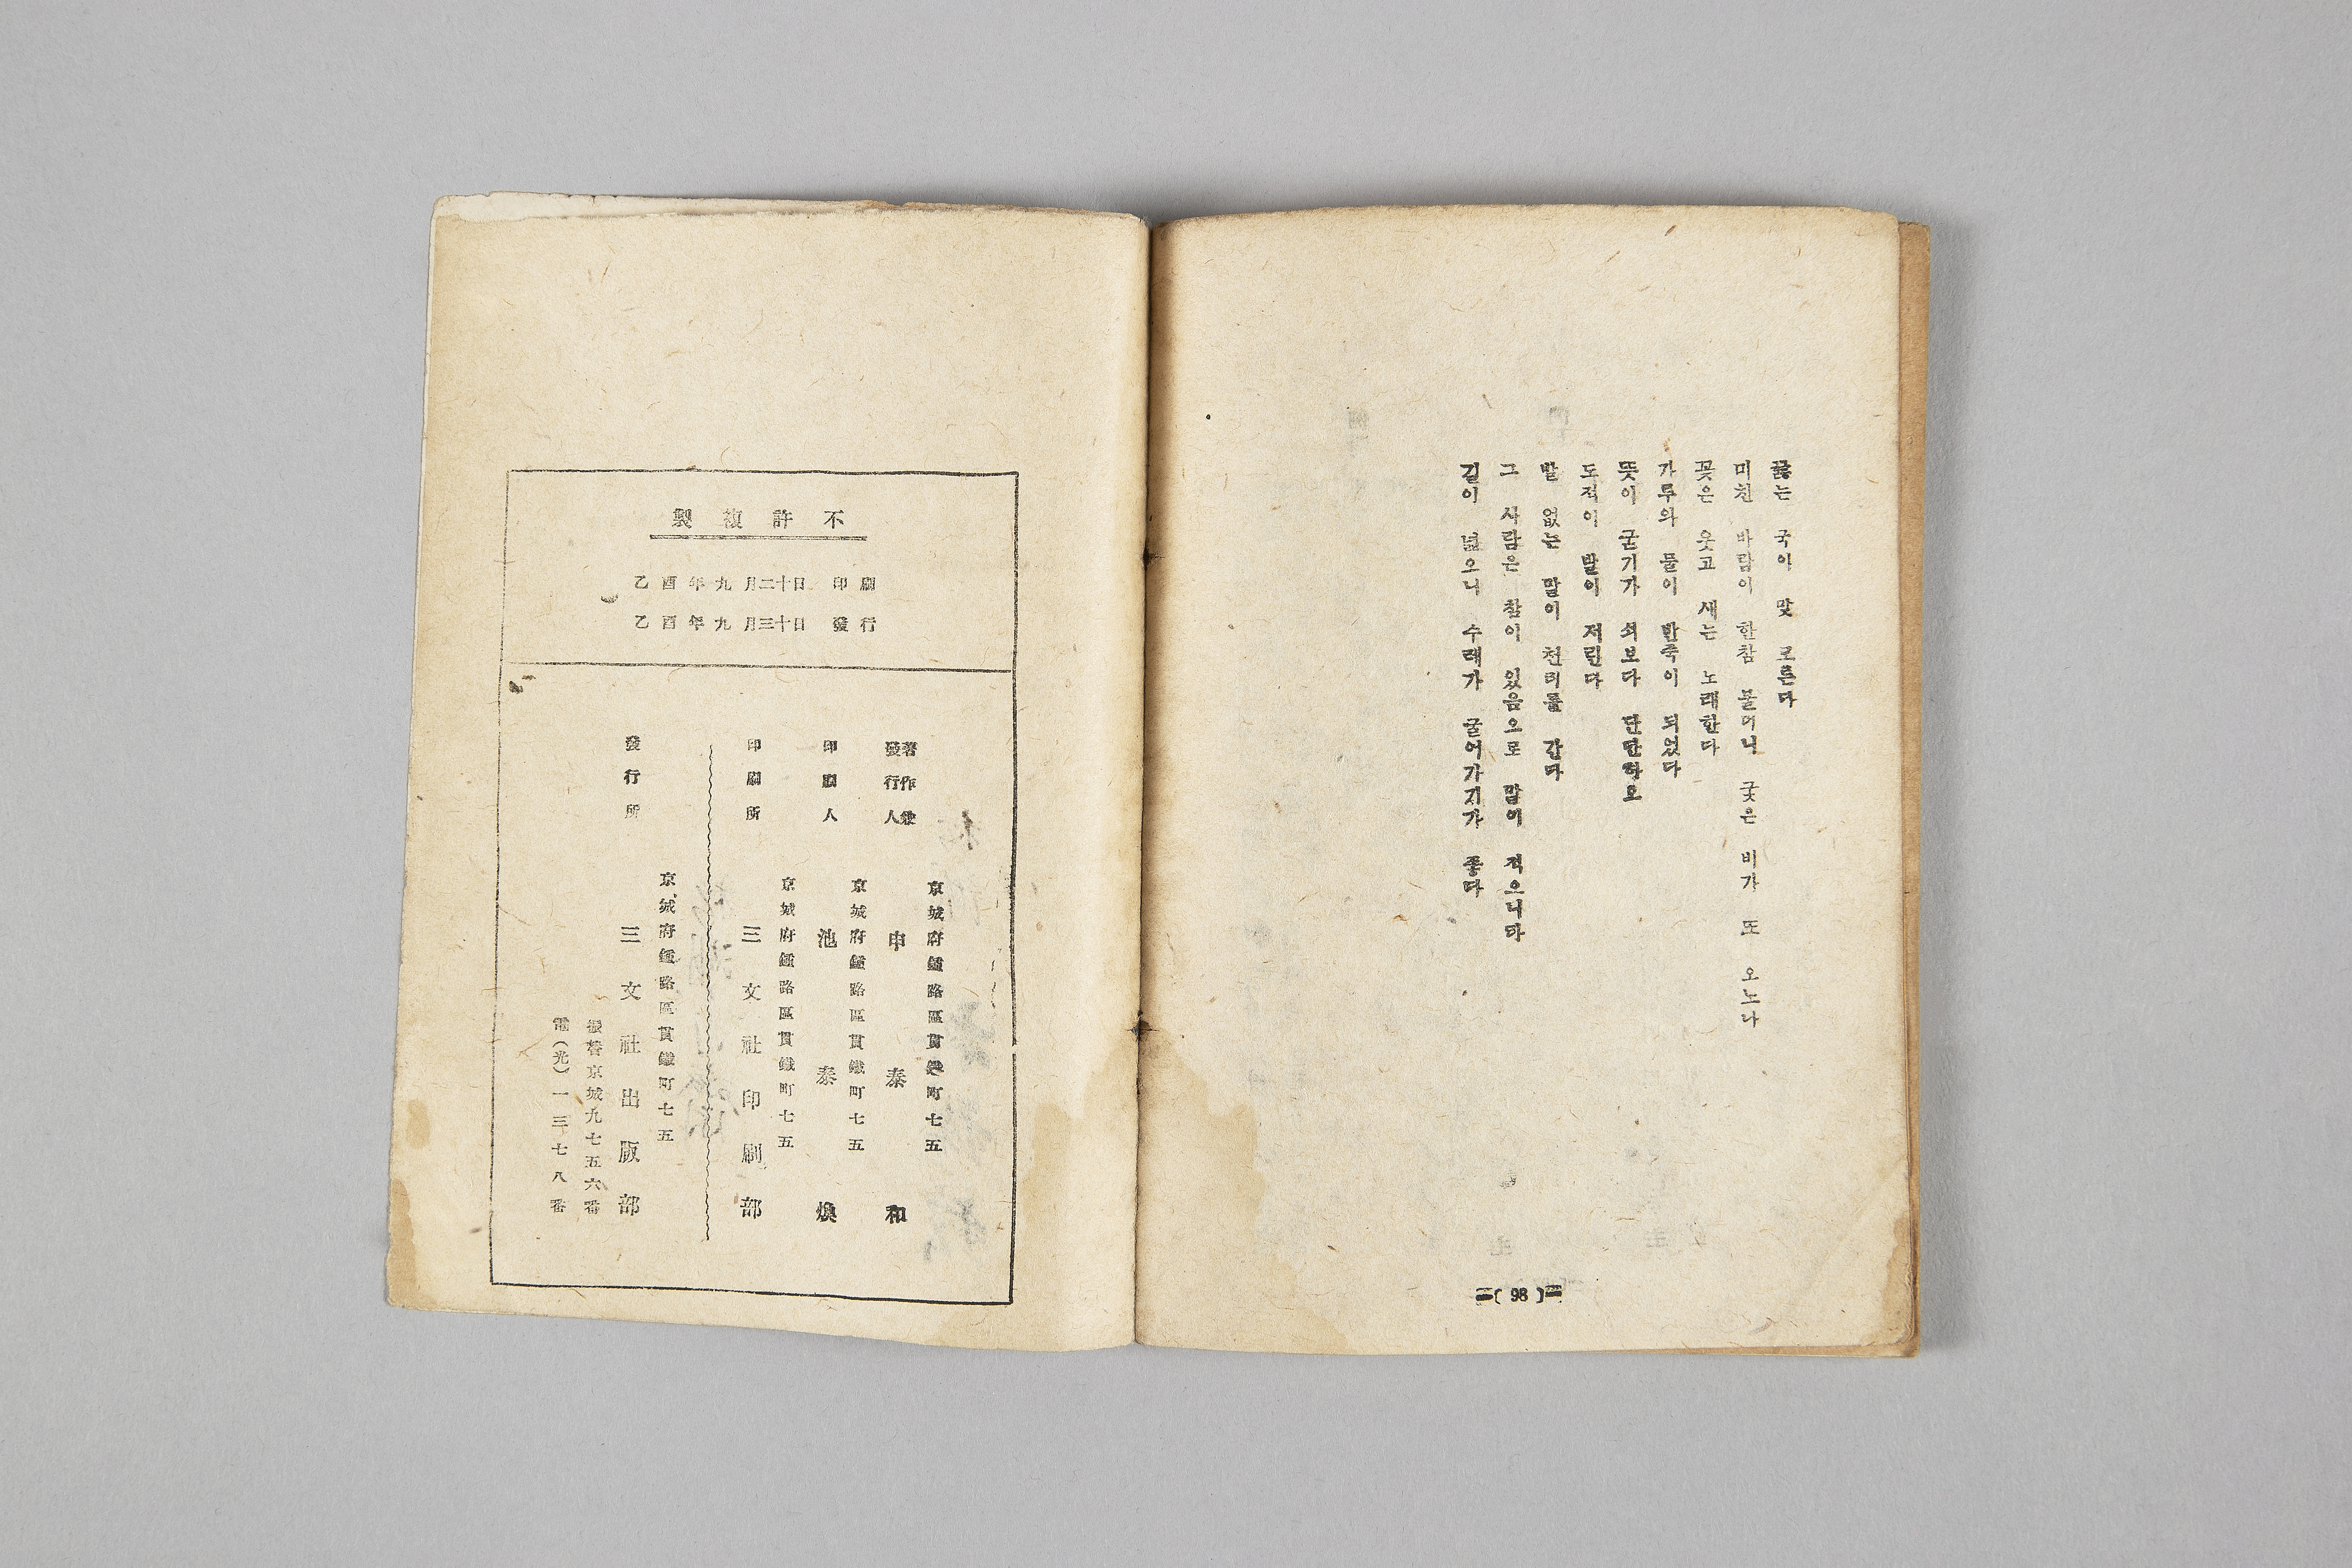 끓는 국이 맛 모른다
미친 바람이 한참 불더니 궂은 비가 또 오노나
꽃은 웃고 새는 노래한다
가루와 물이 반죽이 되었다
뜻이 굳기가 쇠보다 단단하오
도적이 발이 저린다
발 없는 말이 천리를 간다
그 사람은 참이 있음으로 말이 적으니다
길이 넓으니 수레가 굴어가기가 좋다
=( 98 )=
不許複製
乙酉年九月二十日 印刷
乙酉年九月三十日 發行
京城府鍾路區貫鐵町七五
著作兼
發行人 申泰和
京城府鍾路區貫鐵町七五
印刷人 池泰煥
京城府鍾路區貫鐵町七五
印刷所 三文社印刷部
京城府鍾路區貫鐵町七五
發行所 三文社出版部
振替京城九七五六番
電(光)一三七八番